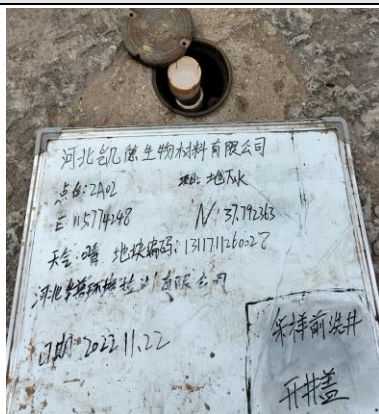 河北凯德生物材料有限公司
点名:2A02 类型:地下水
E:115.774248 N:37.792363
天气:晴 地块编码:1311711260028
河北 环检 有限公司
日期:2022.11.22
采样前洗井
开井盖